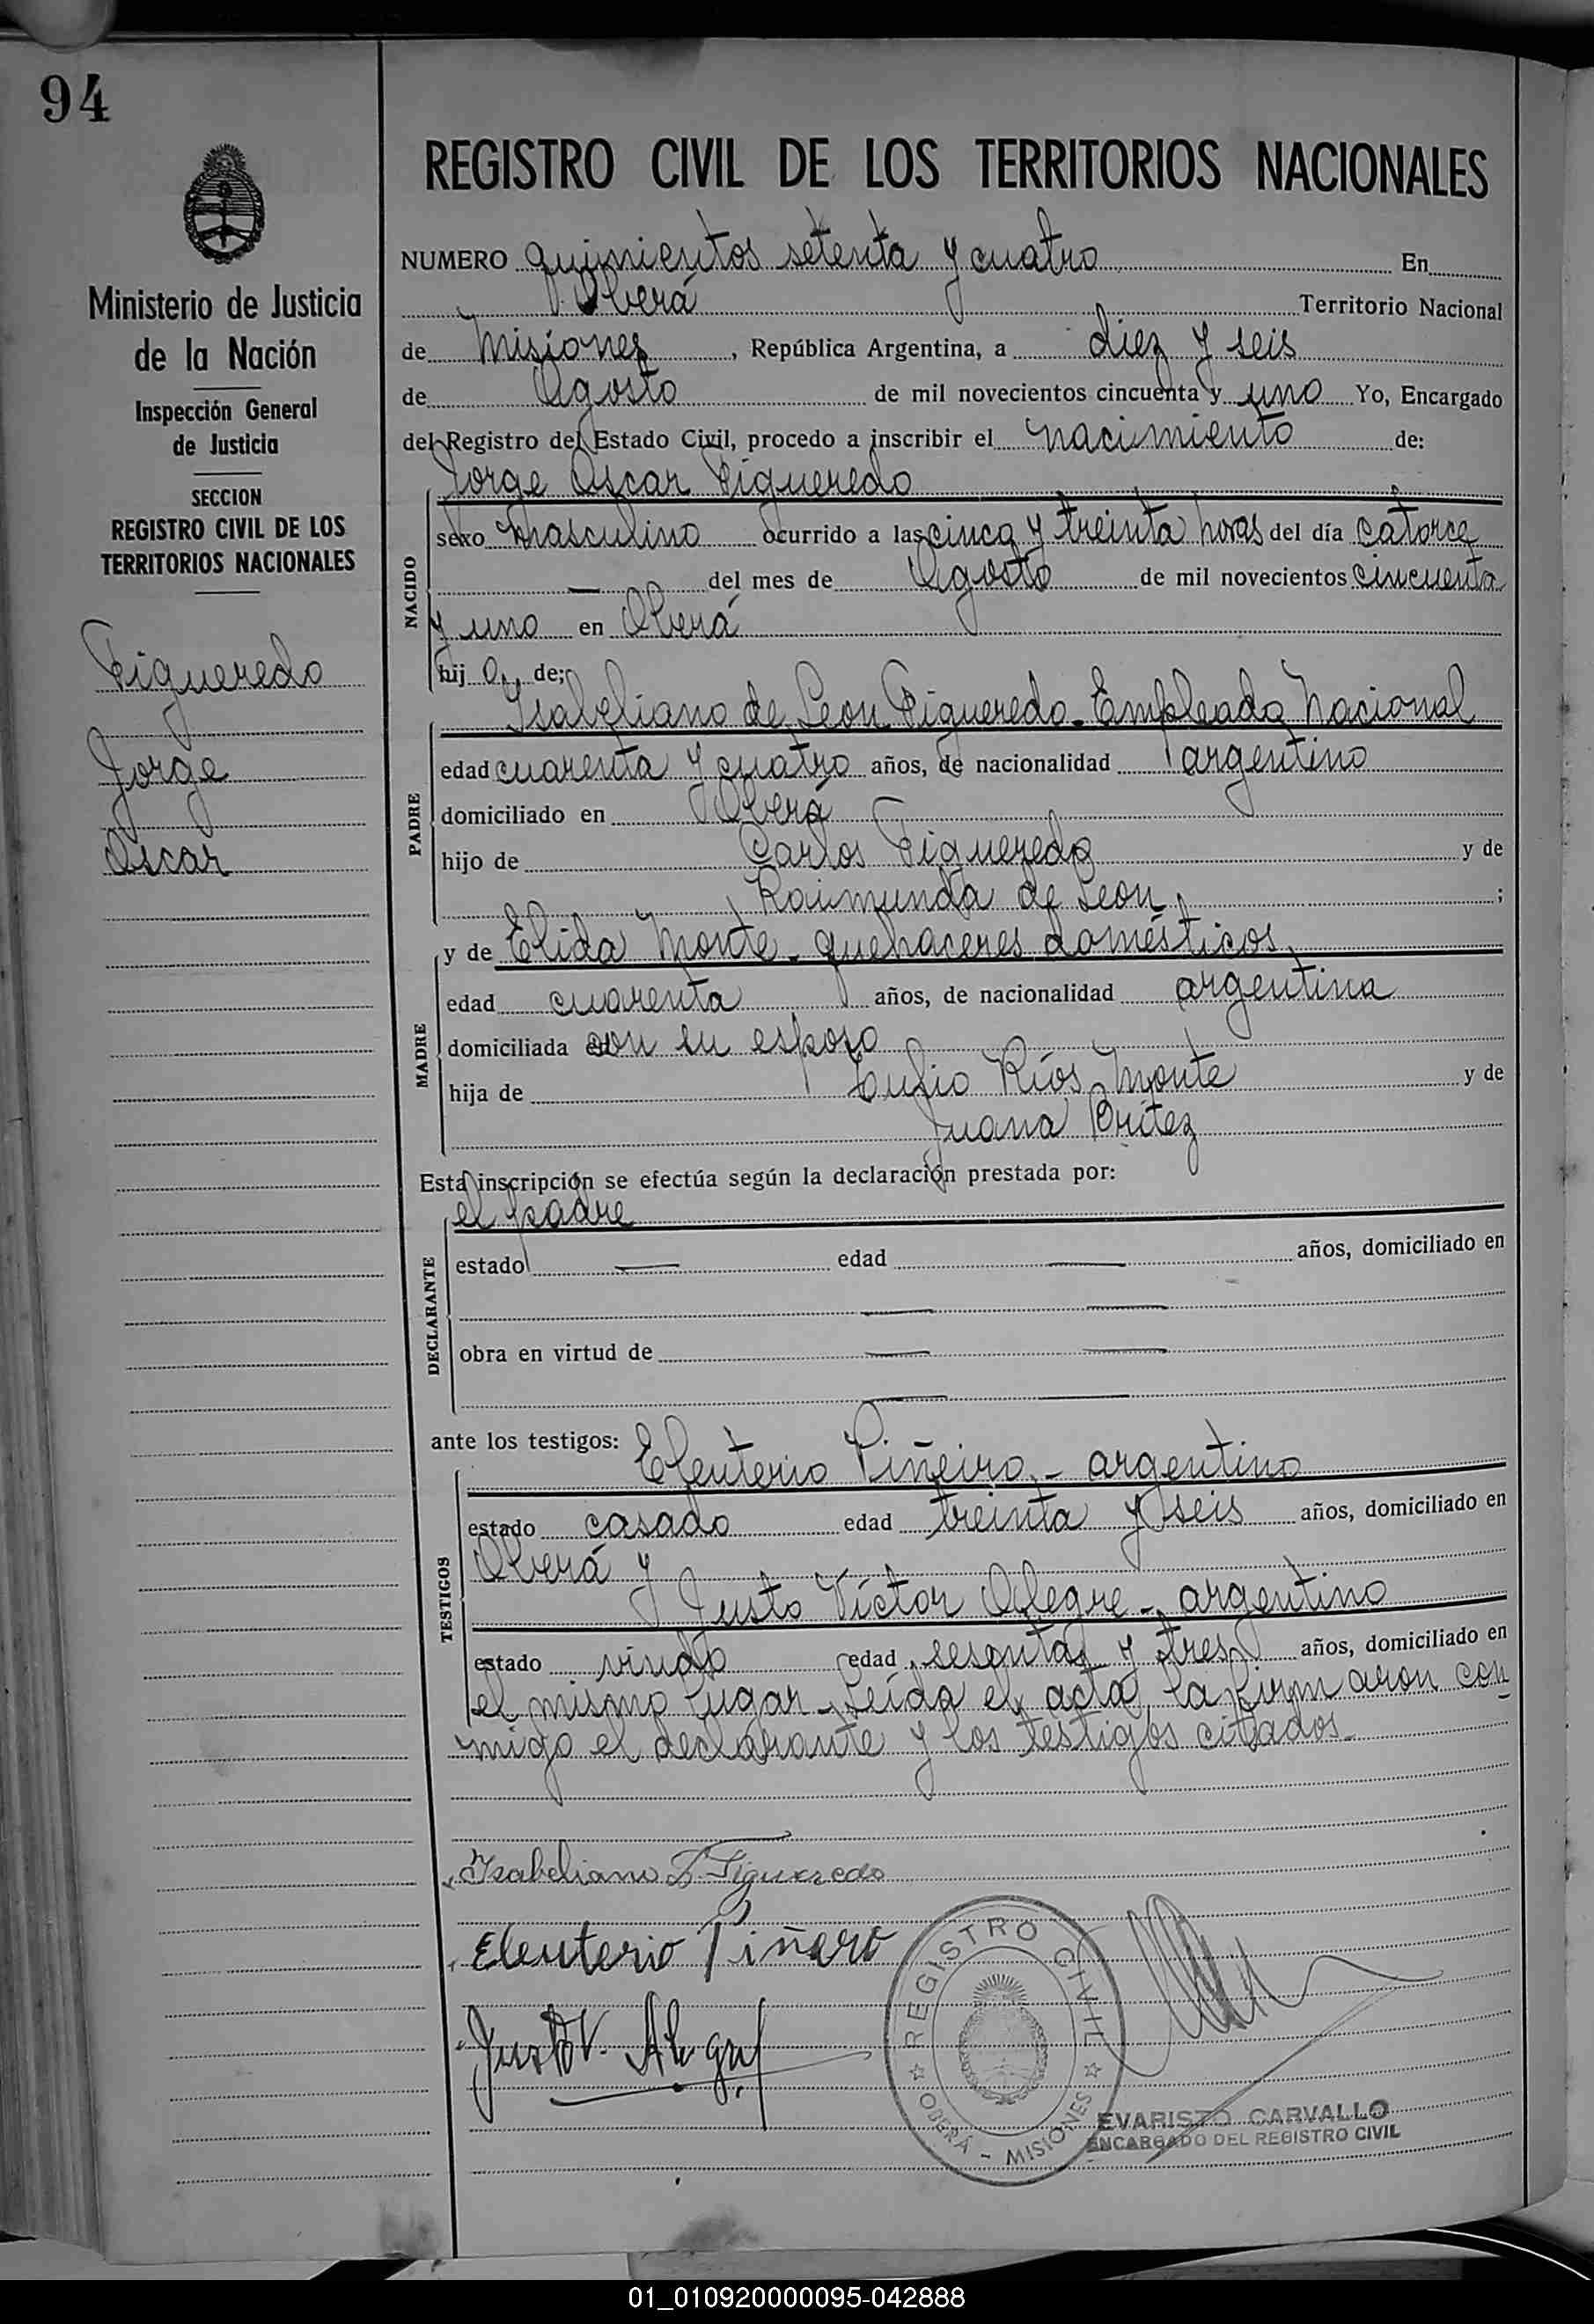 94
Ministerio de Justicia
de la Nación
Inspección General
de Justicia
SECCION
REGISTRO CIVIL DE LOS
TERRITORIOS NACIONALES
Figueredo
Jorge
Oscar
REGISTRO CIVIL DE LOS TERRITORIOS NACIONALES
NUMERO quinientos setenta y cuatro En
Oberá Territorio Nacional
de Misiones, República Argentina, a diez y seis
de Agosto de mil novecientos cincuenta y uno Yo, Encargado
del Registro del Estado Civil, procedo a inscribir el nacimiento de:
Jorge Oscar Figueredo
NACIDO
sexo masculino ocurrido a las cinco y treinta horas del día catorce
— del mes de Agosto de mil novecientos cincuenta
y uno en Oberá
hijo de:
Isabeliano de Leon Figueredo - Empleado Nacional
PADRE
edad cuarenta y cuatro años, de nacionalidad argentino
domiciliado en Oberá
hijo de Carlos Figueredo y de
Raimunda de Leon ;
y de Elida Monte - quehaceres domésticos
MADRE
edad cuarenta años, de nacionalidad argentina
domiciliada con su esposo
hija de Tulio Ríos Monte y de
Juana Britez
Esta inscripción se efectúa según la declaración prestada por:
el padre
DECLARANTE
estado — edad — años, domiciliado en
— —
obra en virtud de — —
— —
ante los testigos:
Eleuterio Piñeiro - argentino
TESTIGOS
estado casado edad treinta y seis años, domiciliado en
Oberá y
Justo Víctor Alegre - argentino
estado viudo edad sesenta y tres años, domiciliado en
el mismo lugar - Leída el acta, la firmaron con
migo el declarante y los testigos citados -
Isabeliano L. Figueredo
Eleuterio Piñero
Justo V. Alegre
REGISTRO CIVIL
OBERÁ - MISIONES
EVARISTO CARVALLO
ENCARGADO DEL REGISTRO CIVIL
01_010920000095-042888